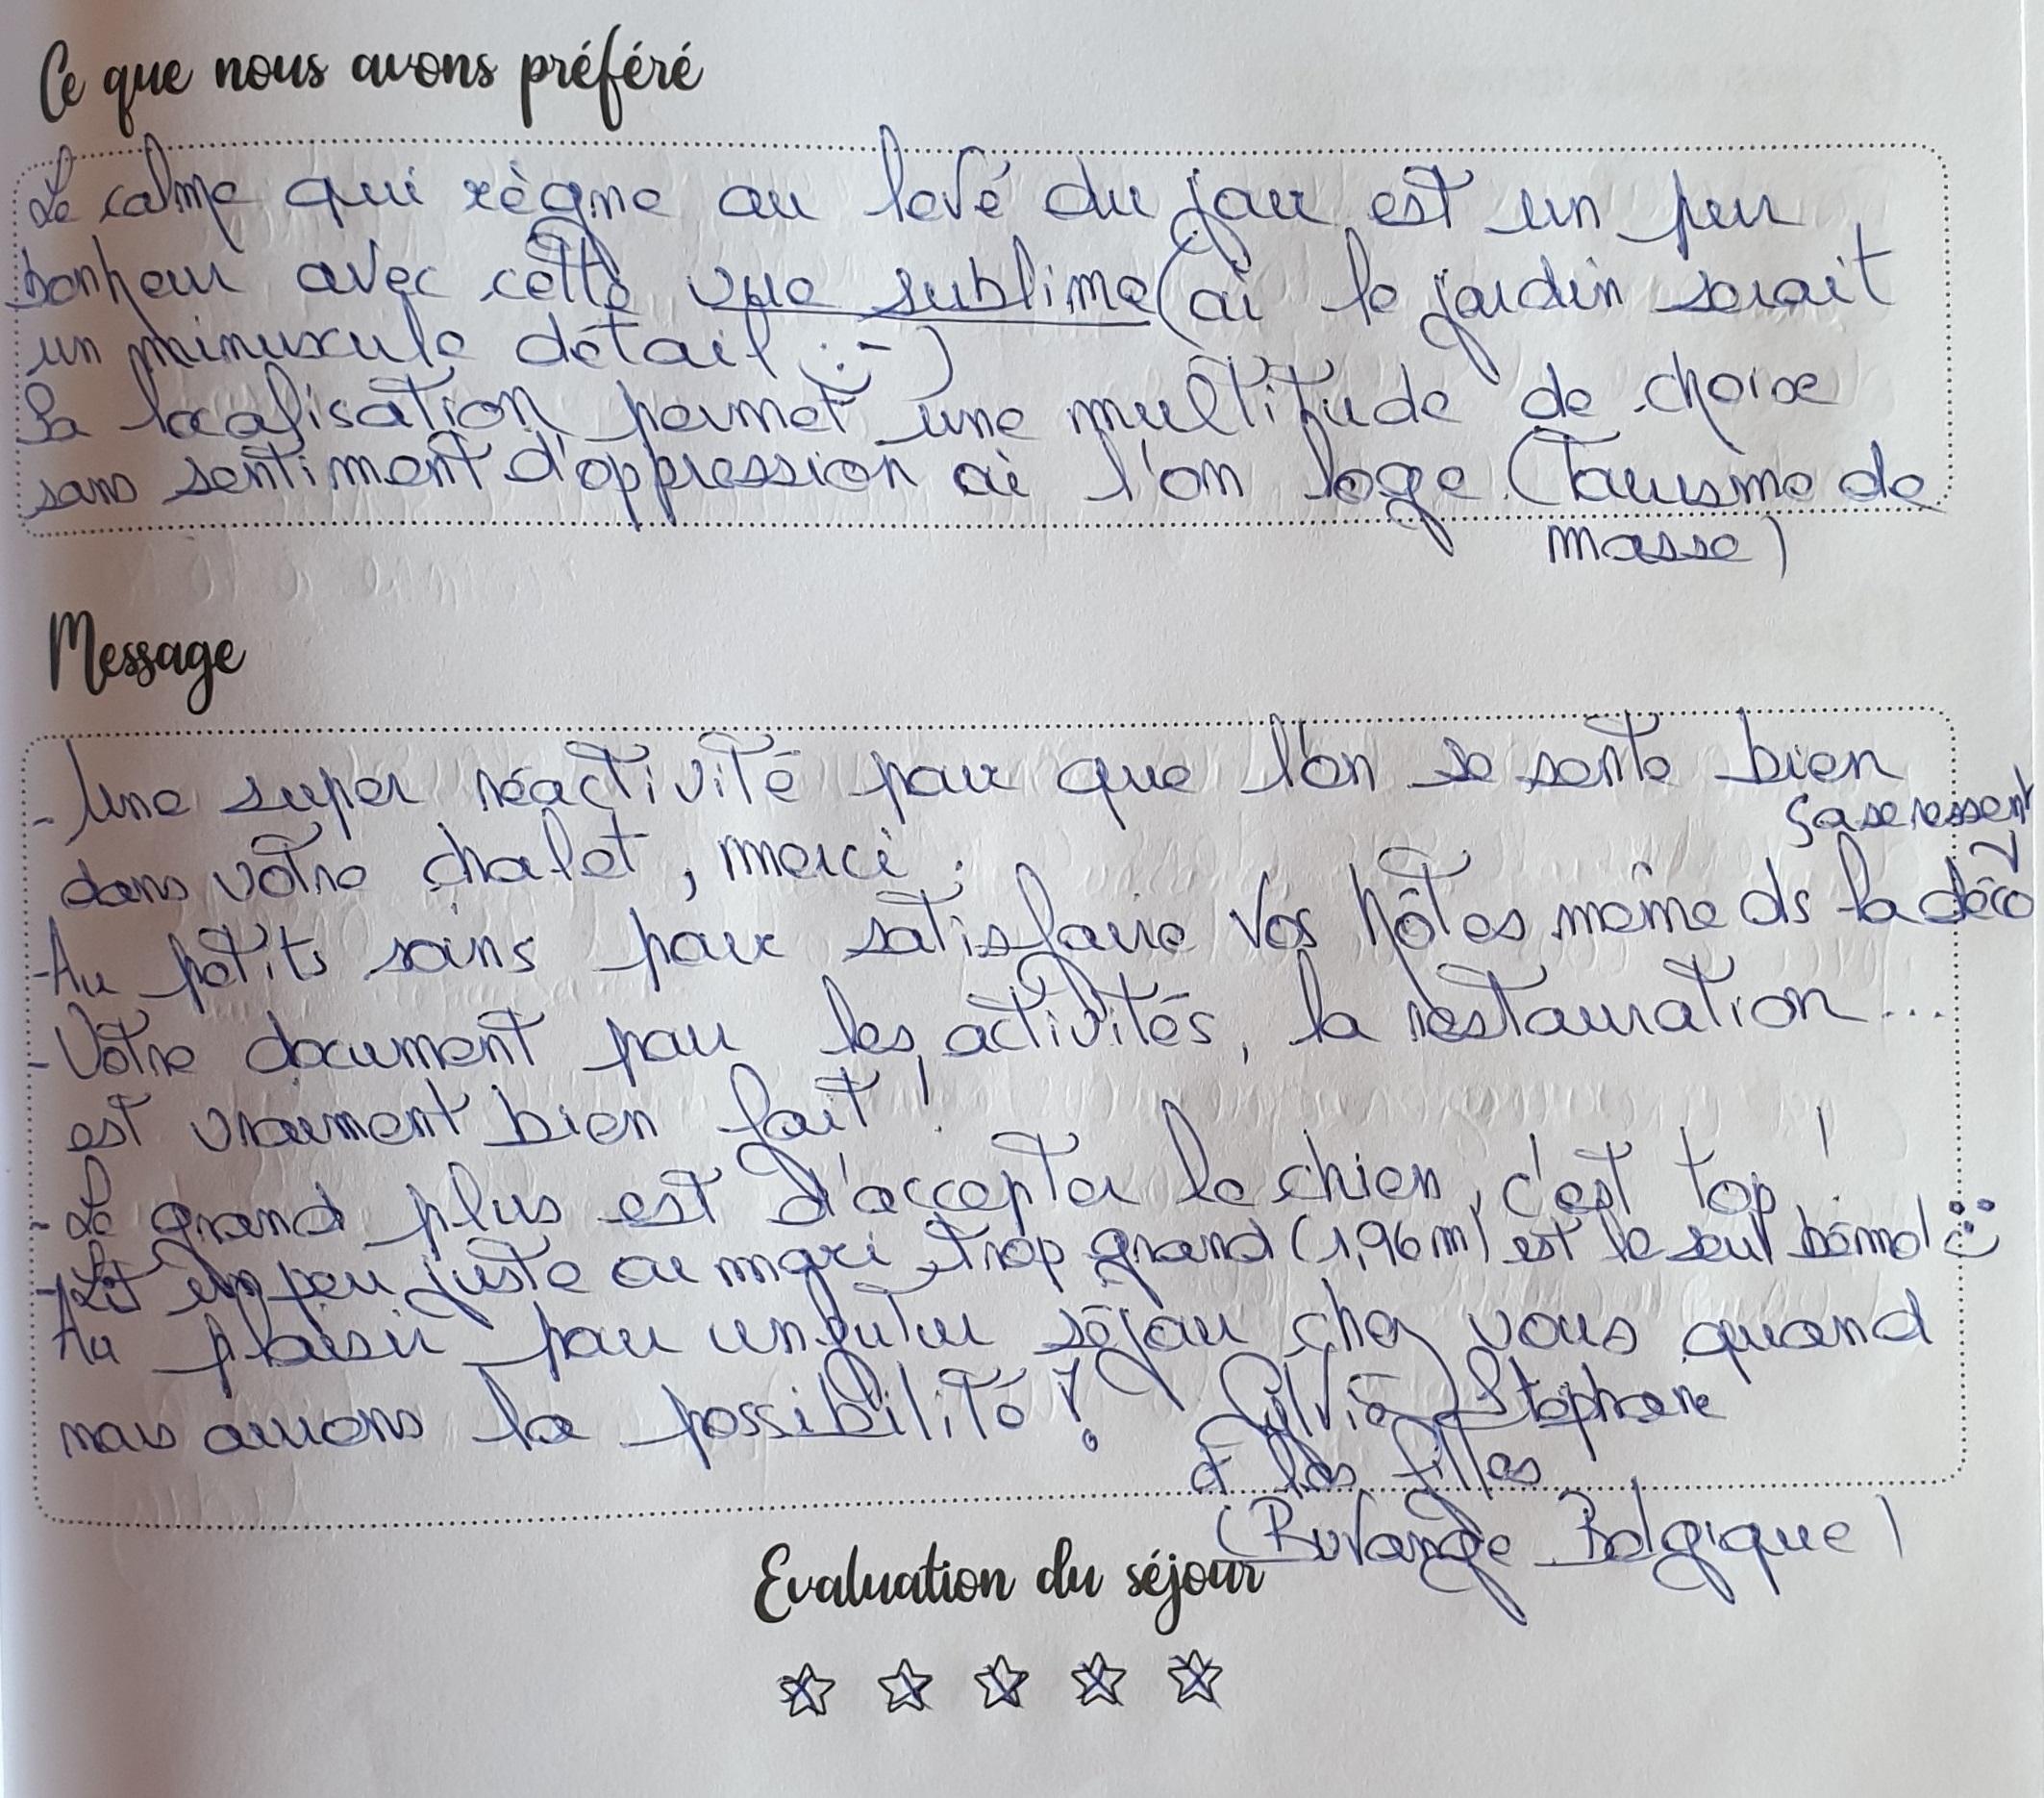 Ce que nous avons préféré
Le calme qui règne au levé du jour est un pur
bonheur avec cette vue sublime (où le jardin serait
un minuscule détail :-)
La localisation permet une multitude de choix
sans sentiment d'oppression où l'on loge (Tourisme de
masse)
Message
- Une super réactivité pour que l'on se sente bien
dans votre chalet, merci.
ça se ressent
- Au petits soins pour satisfaire vos hôtes même ds la déco
- Votre document pour les activités, la restauration...
est vraiment bien fait !
- Le grand plus est d'accepter le chien, c'est top !
- Lit un peu juste car mari trop grand (1,96m) est le seul bémol
Au plaisir pour un futur séjour chez vous quand
nous aurons la possibilité ! Sylvie Stéphane
& les filles
(Burange Belgique)
Evaluation du séjour